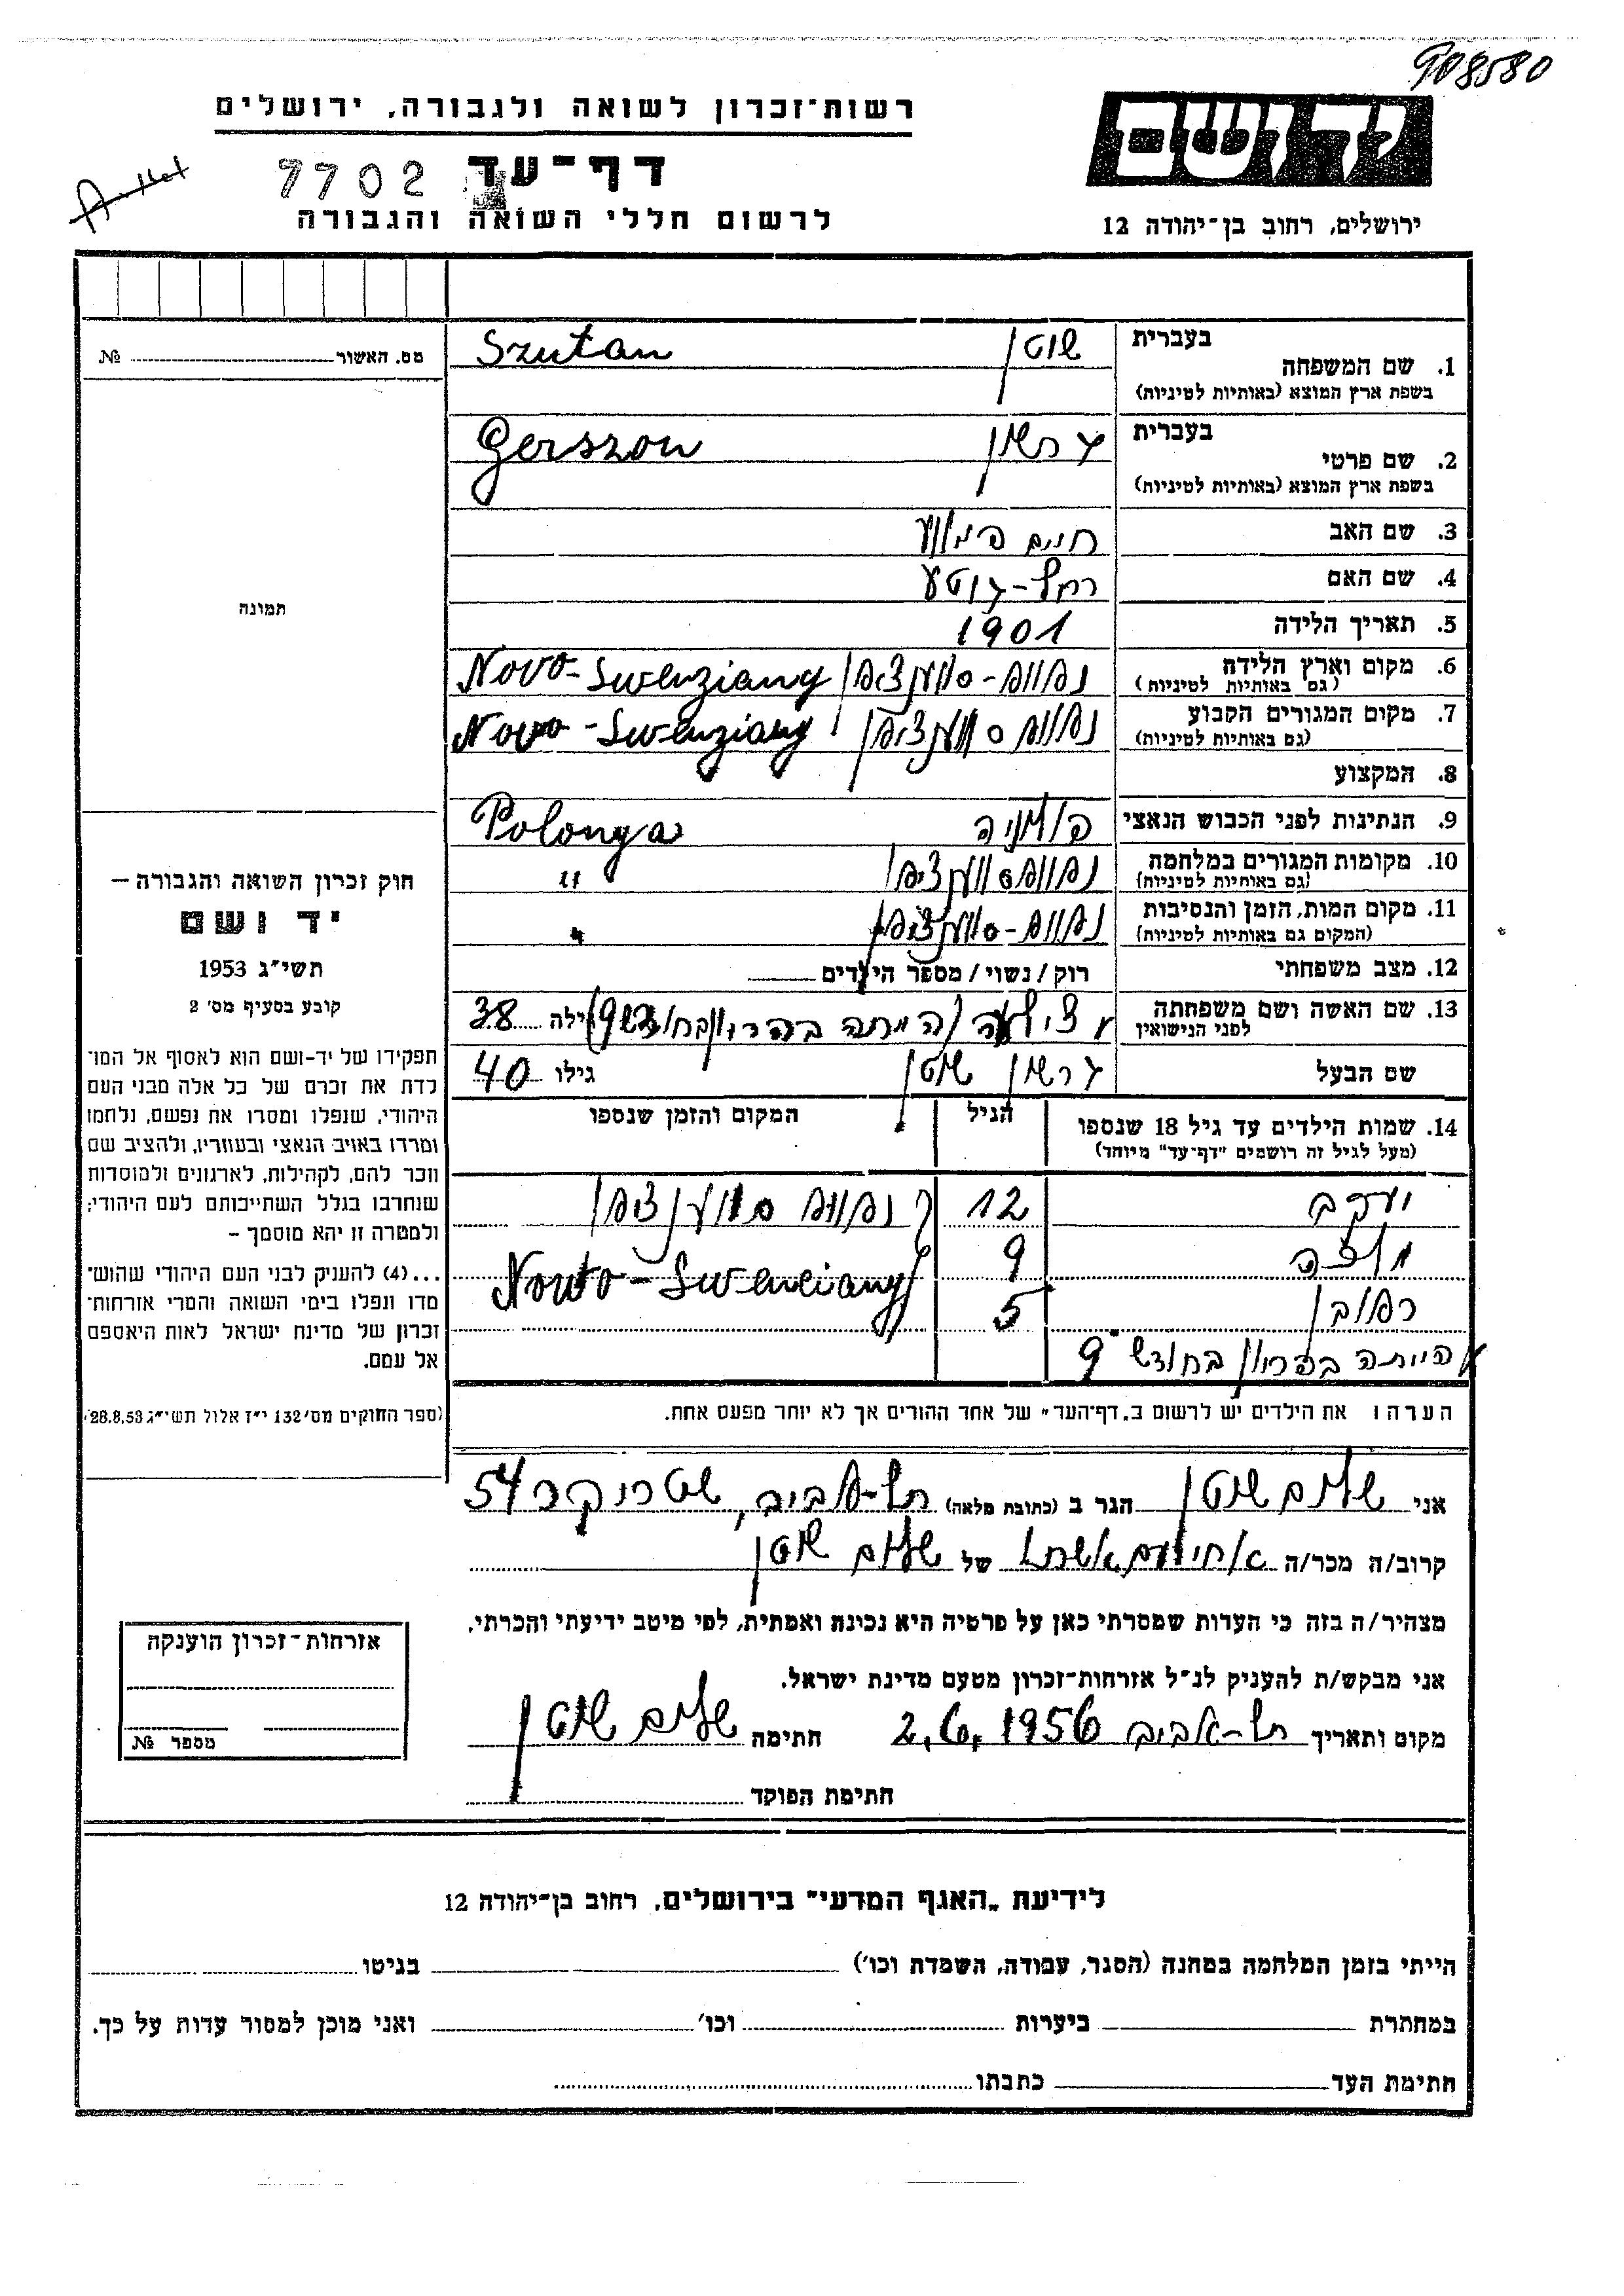 908580
יד ושם
ירושלים, רחוב בן-יהודה 12
רשות-זכרון לשואה ולגבורה, ירושלים
דף-עד
7702
לרשום חללי השואה והגבורה
בעברית
1. שם המשפחה
בשפת ארץ המוצא (באותיות לטיניות)
שוטן Szutan
בעברית
2. שם פרטי
בשפת ארץ המוצא (באותיות לטיניות)
גרשון Gerszon
3. שם האב חיים
4. שם האם רחל-גוטע
5. תאריך הלידה 1901
6. מקום וארץ הלידה
(גם באותיות לטיניות)
Novo-Swenziany
7. מקום המגורים הקבוע
(גם באותיות לטיניות)
Novo-Swenziany
8. המקצוע
9. הנתינות לפני הכבוש הנאצי פולניה Polonya
10. מקומות המגורים במלחמה
(גם באותיות לטיניות)
"
11. מקום המות, הזמן והנסיבות
(המקום גם באותיות לטיניות)
"
12. מצב משפחתי רוק / נשוי / מספר הילדים
13. שם האשה ושם משפחתה
לפני הנישואין
(היתה בהריון בחודש 9) גילה 38
שם הבעל גרשון שוטן גילו 40
14. שמות הילדים עד גיל 18 שנספו
(מעל לגיל זה רושמים "דף-עד" מיוחד)
הגיל
המקום והזמן שנספו
יעקב 12
9 Novo-Swenciany
ראובן 5
הייתה בהריון בחודש 9
הערה: את הילדים יש לרשום ב"דף-העד" של אחד ההורים אך לא יותר מפעם אחת.
אני שלום שוטן הגר ב (כתובת מלאה) תל-אביב, שטריקר 54
קרוב/ה מכר/ה של שלום שוטן
מצהיר/ה בזה כי העדות שמסרתי כאן על פרטיה היא נכונה ואמתית, לפי מיטב ידיעתי והכרתי.
אני מבקש/ת להעניק לנ"ל אזרחות-זכרון מטעם מדינת ישראל.
מקום ותאריך תל-אביב 2.6.1956 חתימה שלום שוטן
חתימת הפוקד
מס. האשור №
תמונה
חוק זכרון השואה והגבורה –
יד ושם
תשי"ג 1953
קובע בסעיף מס' 2
תפקידו של יד-ושם הוא לאסוף אל המו־
לדת את זכרם של כל אלה מבני העם
היהודי, שנפלו ומסרו את נפשם, נלחמו
ומרדו באויב הנאצי ובעוזריו, ולהציב שם
וזכר להם, לקהילות, לארגונים ולמוסדות
שנחרבו בגלל השתייכותם לעם היהודי;
ולמטרה זו יהא מוסמך –
...(4) להעניק לבני העם היהודי שהוש־
מדו ונפלו בימי השואה והמרי אזרחות־
זכרון של מדינת ישראל לאות היאספם
אל עמם.
(ספר החוקים מס' 132 י"ז אלול תשי"ג 28.8.53)
אזרחות-זכרון הוענקה
מספר №
לידיעת "האגף המדעי" בירושלים, רחוב בן-יהודה 12
הייתי בזמן המלחמה במחנה (הסגר, עבודה, השמדת וכו') בגיטו
במחתרת ביערות וכו' ואני מוכן למסור עדות על כך.
חתימת העד כתבתו